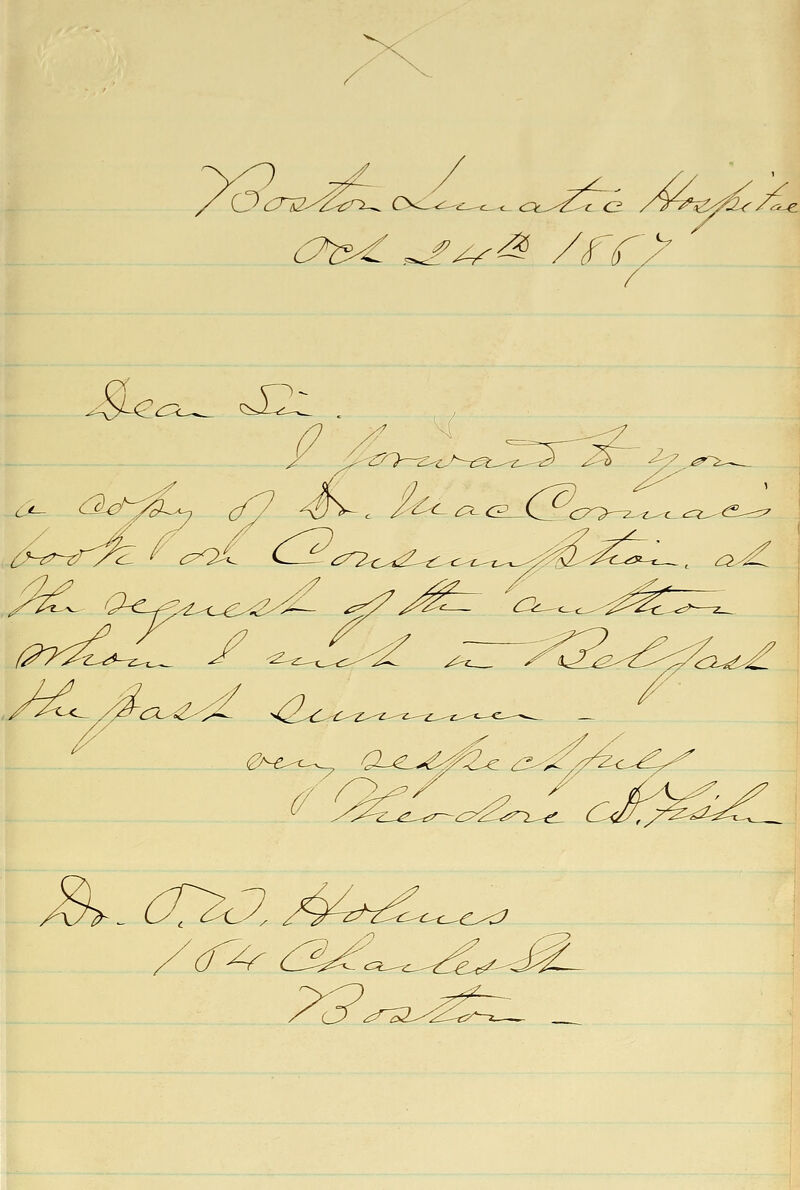 Boston Lunatic Hospital
Oct 24th 1867
Dear Sir.
I forward to you
a copy of Dr. MacCormac's
book on Consumption, at
the request of the author
whom I met in Belfast
the past summer -
very respectfully
Theodore W. Fisher
Dr. O. W. Holmes
164 Charles St
Boston -